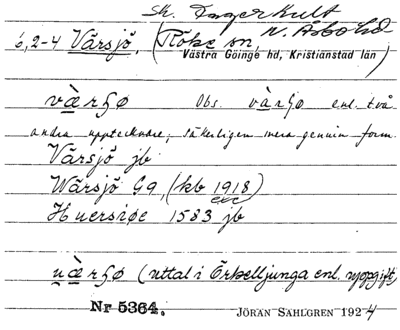 Sk. Fagerhult
6,2-4 Värsjö, (Röke sn, N. Åsbo hd
Västra Göinge hd, Kristianstad län)
vàrʃø Obs. vàrʃø enl. två
andra upptecknare; säkerligen mera genuin form.
Värsjö jb
Wärsjö G9, (kb 1918) etc
Huersiøe 1583 jb
u̯àrʃø (uttal i Örkelljunga enl. uppgift)
Nr 5364. JÖRAN SAHLGREN 1924